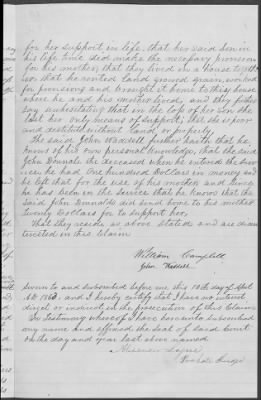 for her support in life, that her said son in
his life time did make the necessary provision
for his mother, that they lived in a House together
so that he rented land ground grain, worked
for provisions and brought it home to this house
where he and his mother lived, and they further
say substantiating that in the loss of her son she
lost her only means of support, she is poor
and destitute without land or property
The said John Waddell further saith that he
knows of his own personal knowledge, that the said
John Donnald the deceased when he entered the Ser-
vice he had One hundred Dollars in money and
he left that for the use of his mother and since
he has been in the service that he knows that the
said John Donnald did send home to his mother
twenty Dollars for to support her,
That they reside as above stated and are disin-
terested in this Claim
William Campbell
John Waddell
Sworn to and subscribed before me this 10th day of April
A.D. 1863, and I hereby certify that I have no interest
direct or indirect in the prosecution of this Claim
In Testimony whereof I have hereunto subscribed
my name and affixed the seal of said Court
on the day and year last above named
Probate Judge